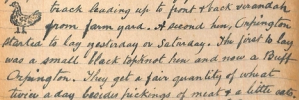 track leading up to front & back verandah
from farm yard. A second hen, Orpington
started to lay yesterday or Saturday. The first to lay
was a small black topknot hen and now a Buff
Orpington. They get a fair quantity of wheat
twice a day besides pickings of meat & a little oats